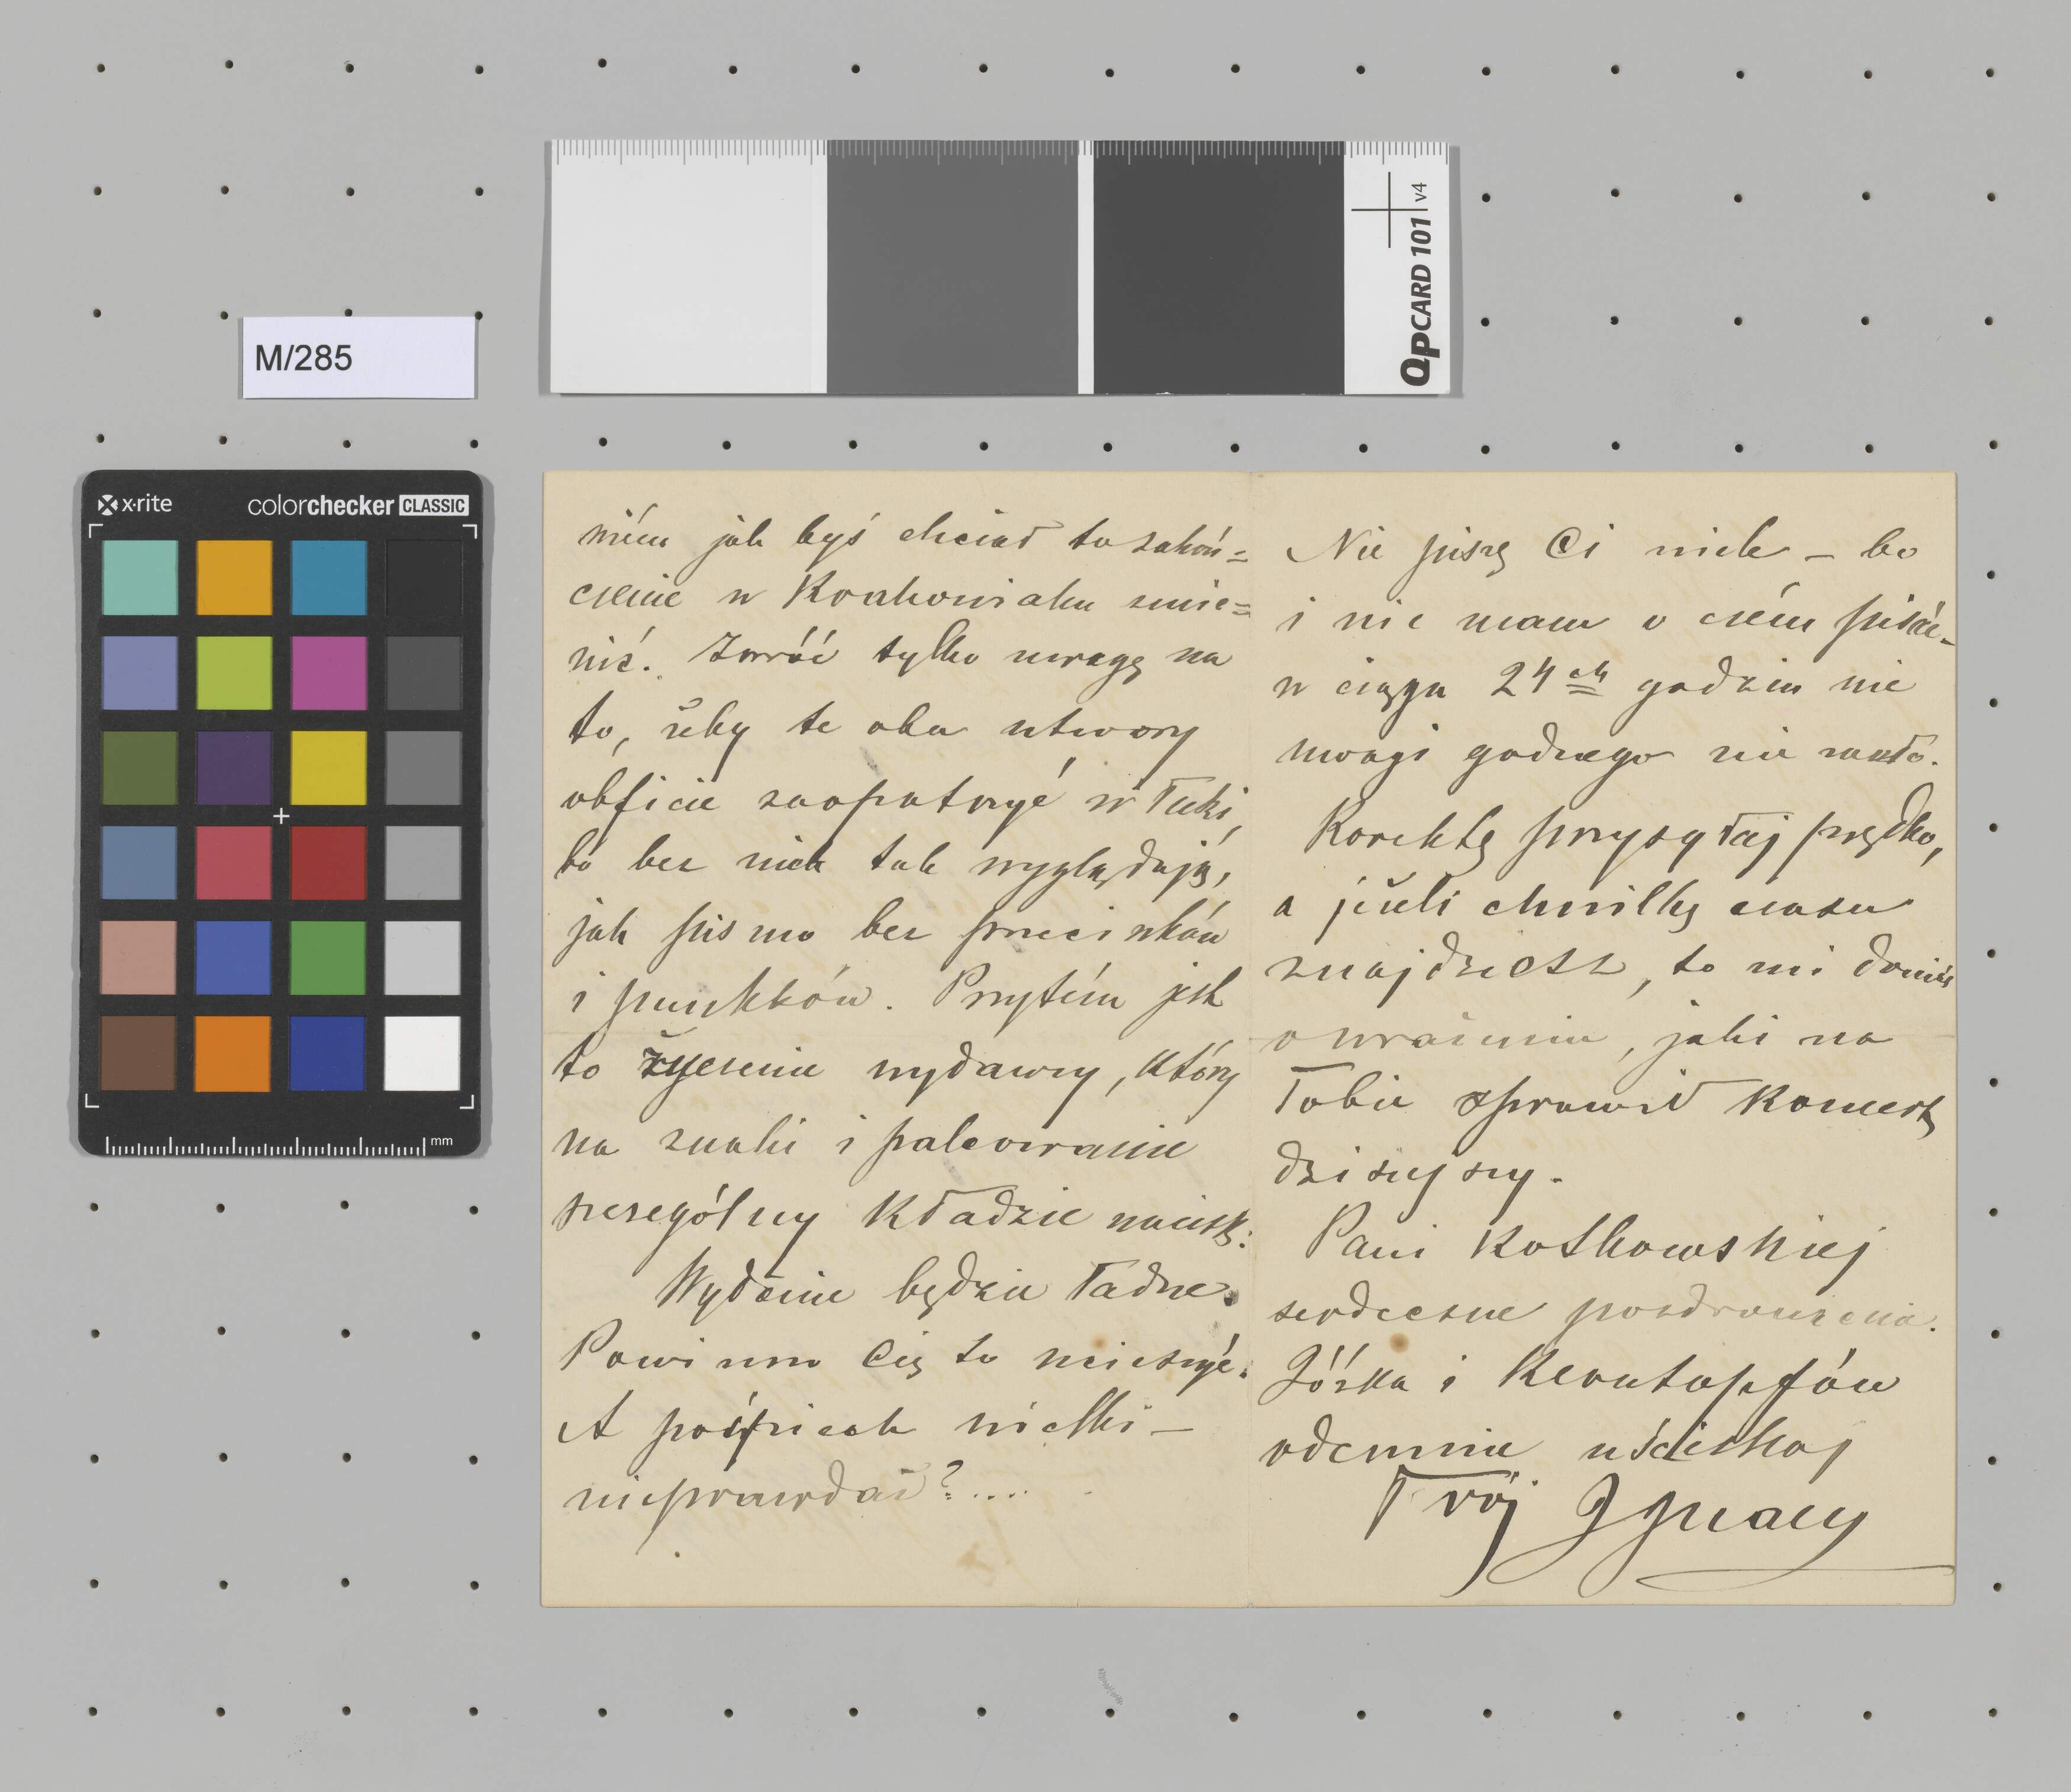 QPCARD 101 v4
M/285
x·rite colorchecker CLASSIC
mm
niém jak byś chciał to zakoń=
czenie w Krakowiaku zmie=
nić. Zwróć tylko uwagę na
to, żeby te oba utwory
obficie zaopatrzyć w łuki,
bo bez nich tak wyglądają,
jak pismo bez przecinków
i punktów. Przytém jest
to życzenie wydawcy, który
na znaki i palcowanie
szczególny kładzie nacisk.
Wydanie będzie ładne.
Powinno Cię to ucieszyć.
A pośpiech wielki –
nieprawdaż?....
Nie piszę Ci wiele – bo
i nie mam o czém pisać –
w ciągu 24ch godzin nic
uwagi godnego nie zaszło.
Korektę przysyłaj prędko,
a jeżeli chwilkę czasu
znajdziesz, to mi donieś
o wrażeniu, jakie na
Tobie sprawił koncert
dzisiejszy.
Pani Kotkowskiej
serdeczne pozdrowienia.
Józka i Kerntopfów
odemnie uściskaj
Twój Ignacy